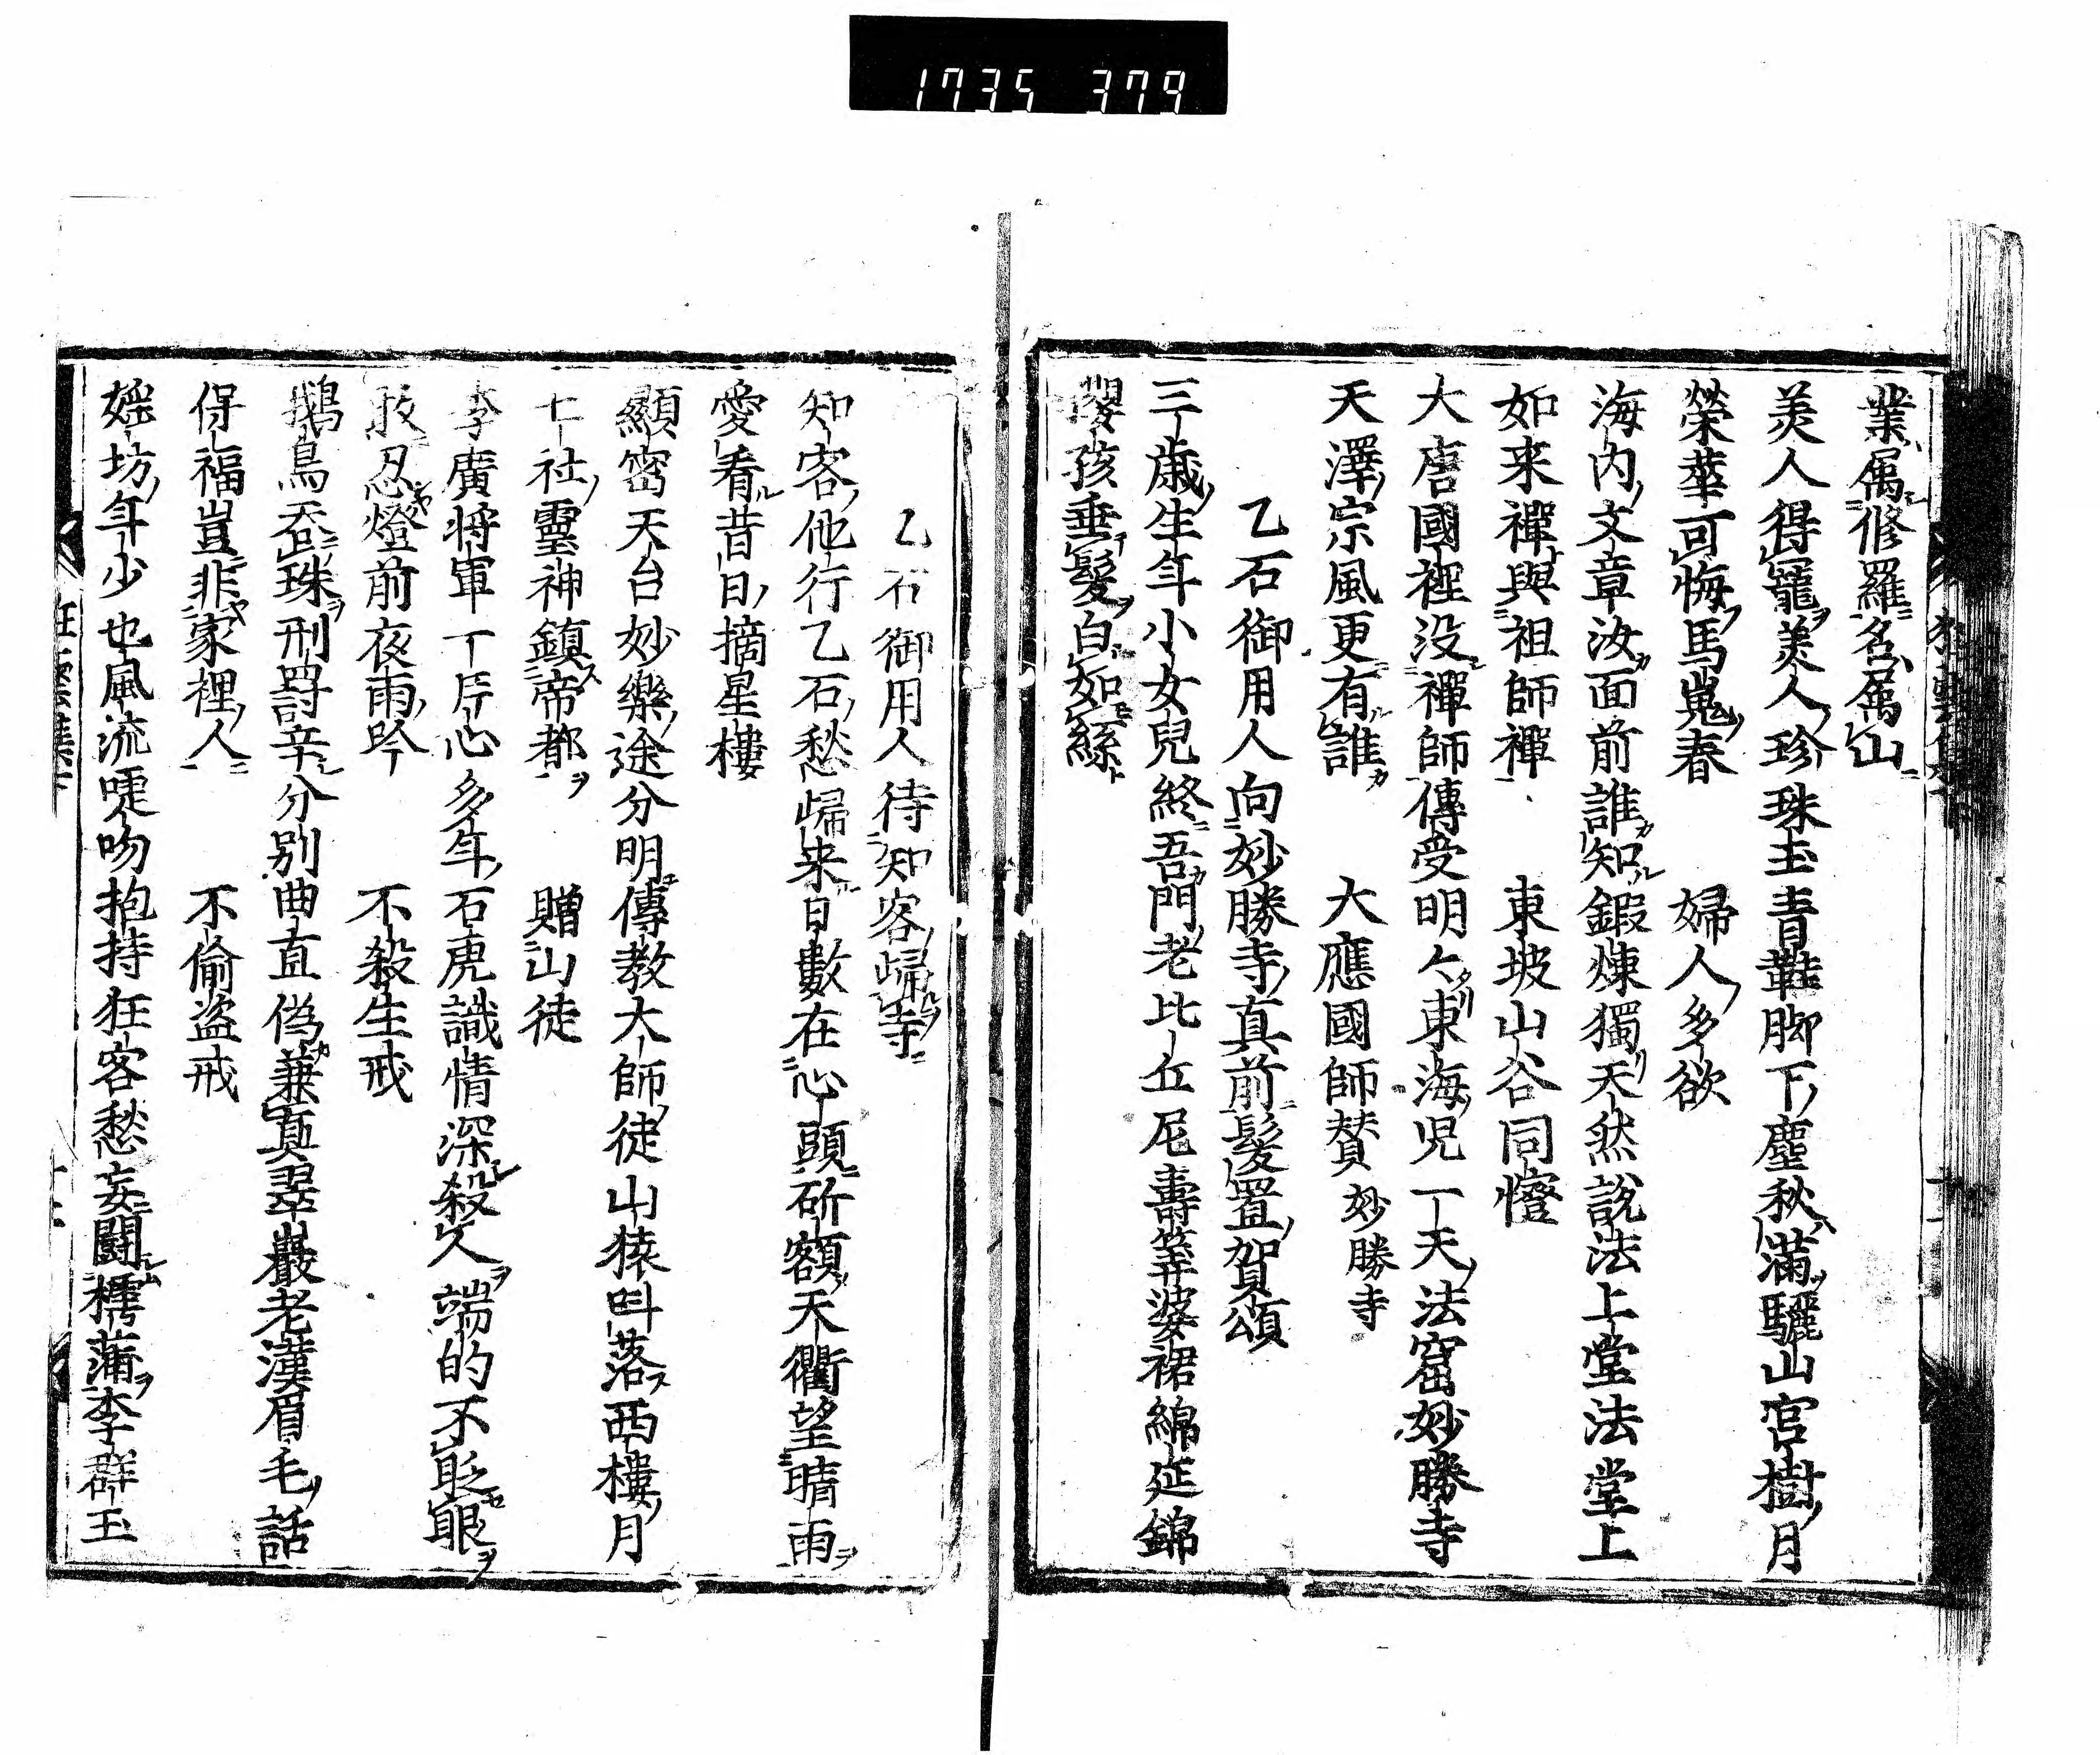 1735 379
業属修羅名属山
美人得寵美人珍珠玉青鞋脚下塵秋満驪山宮樹月
榮華可悔馬嵬春　婦人多欲
海内文章汝面前誰知鍛煉獨天然説法上堂法堂上
如来禪與祖師禪　東坡山谷同幢
大唐國裡没禪師傳受明々東海児一天法窟妙勝寺
天澤宗風更有誰　大應國師賛妙勝寺
乙石御用人向妙勝寺真前髪置賀頌
三歳生年小女兒終吾門老比丘尼壽筭婆裙綿延錦
嬰孩垂髮白如絲
乙石御用人待知客歸寺
知客他行乙石愁歸来日數在心頭斫額天衢望晴雨
愛看昔日摘星樓
顯密天台妙樂途分明傳教大師徒山猿叫落西樓月
七社靈神鎮帝都　贈山徒
李廣将軍一片心多年石虎識情深殺人端的不眨眼
敢忍燈前夜雨吟　不殺生戒
鵝鳥呑珠刑罸辛分別曲直偽兼真翠巖老漢眉毛話
保福豈非家裡人　不偷盗戒
婬坊年少也風流啑吻抱持狂客愁妄鬪樗蒲李群玉